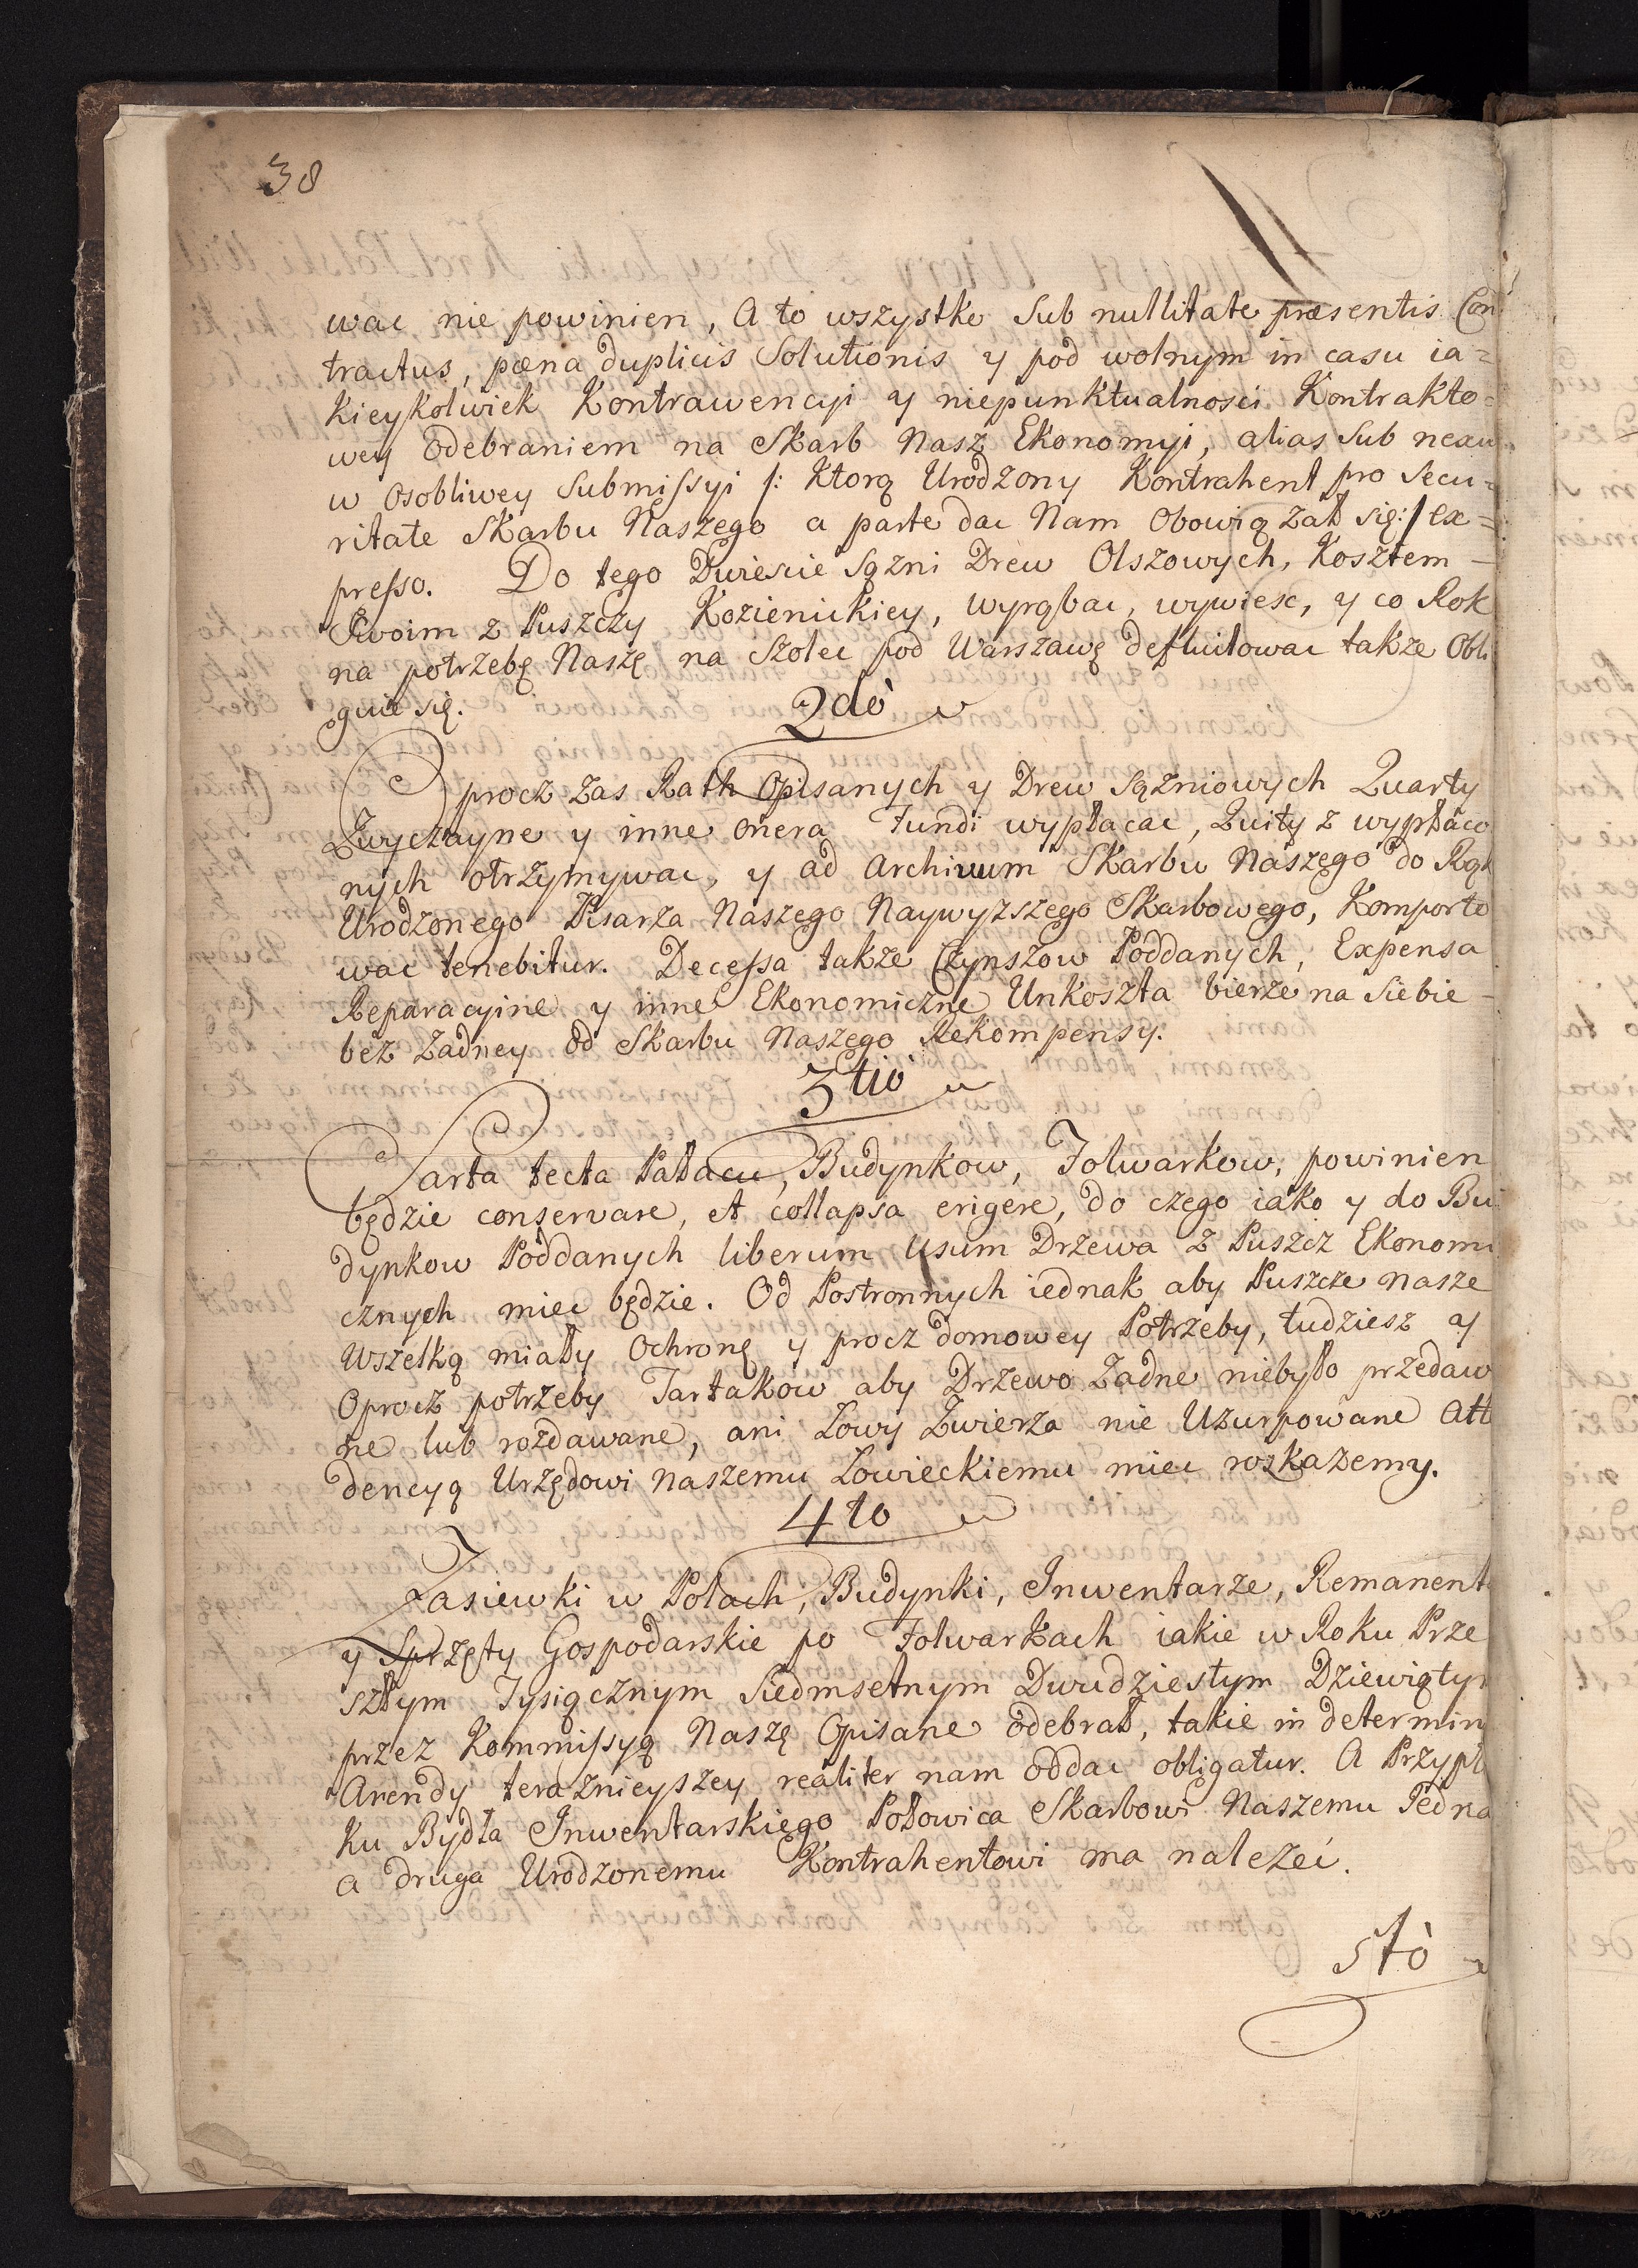 38
wac nie powinien, A to wszystko Sub nullitate præsentis Con
tractus, pœna duplicis Solutionis y pod wolnym in casu ia=
kieykolwiek Kontrawencyi y niepunktualnosci Kontrakto=
wey Odebraniem na Skarb Nasz Ekonomyi, alias Sub nexu
w Osobliwey Submissyi /: Ktorą Urodzony Kontrahent pro Secu=
ritate Skarbu Naszego a parte dac Nam Obowiązał się:/ ex=
presso. Do tego Dwiescie Sązni Drew Olszowych, Kosztem
Swoim z Puszczy Kozienickiey, wyrąbac, wywiesc, y co Rok
na potrzebę Naszę na Szolec pod Warszawę defluitowac takze Obli
guie się.
2dò
Oprocz zas Rath Opisanych y Drew sązniowych Quarty
Zwyczayne y inne onera Fundi wypłacac, Quity z wypłaco
nych otrzymywac, y ad Archivum Skarbu Naszego do Rąk
Urodzonego Pisarza Naszego Naywyzszego Skarbowego, Komporto
wac tenebitur. Decessa takze Czynszow Poddanych, Expensa
Reparacyine y inne Ekonomiczne Unkoszta bierze na Siebie
bez Zadney od Skarbu Naszego Rekompensy.
3tiò
Sarta tecta Pałacu, Budynkow, Folwarkow, powinien
będzie conservare, et collapsa erigere, do czego iako y do Bu
dynkow Poddanych liberum Usum Drzewa z Puszcz Ekonomi
cznych miec będzie. Od Postronnych iednak aby Puszcze nasze
Wszelką miały Ochronę y procz domowey Potrzeby, tudziesz y
Oprocz potrzeby Tartakow aby Drzewo Zadne niebyło przedaw
ne lub rozdawane, ani Łowy Zwierza nie Uzurpowane Att
dencyą Urzędowi Naszemu Łowieckiemu miec roskazemy.
4to
Zasiewki w Polach, Budynki, Inwentarze, Remanenta
y Sprzęty Gospodarskie po Folwarkach iakie w Roku Prze
szłym Tysiącznym Siedmsetnym Dwudziestym Dziewiątym
przez Kommissyą Naszę Opisane odebrał, takie in determin
Arendy teraznieyszey realiter nam oddac obligatur. A Przypł
ku Bydła Inwentarskiego Połowica Skarbowi Naszemu Jedna
a druga Urodzonemu Kontrahentowi ma nalezeć.
5tò